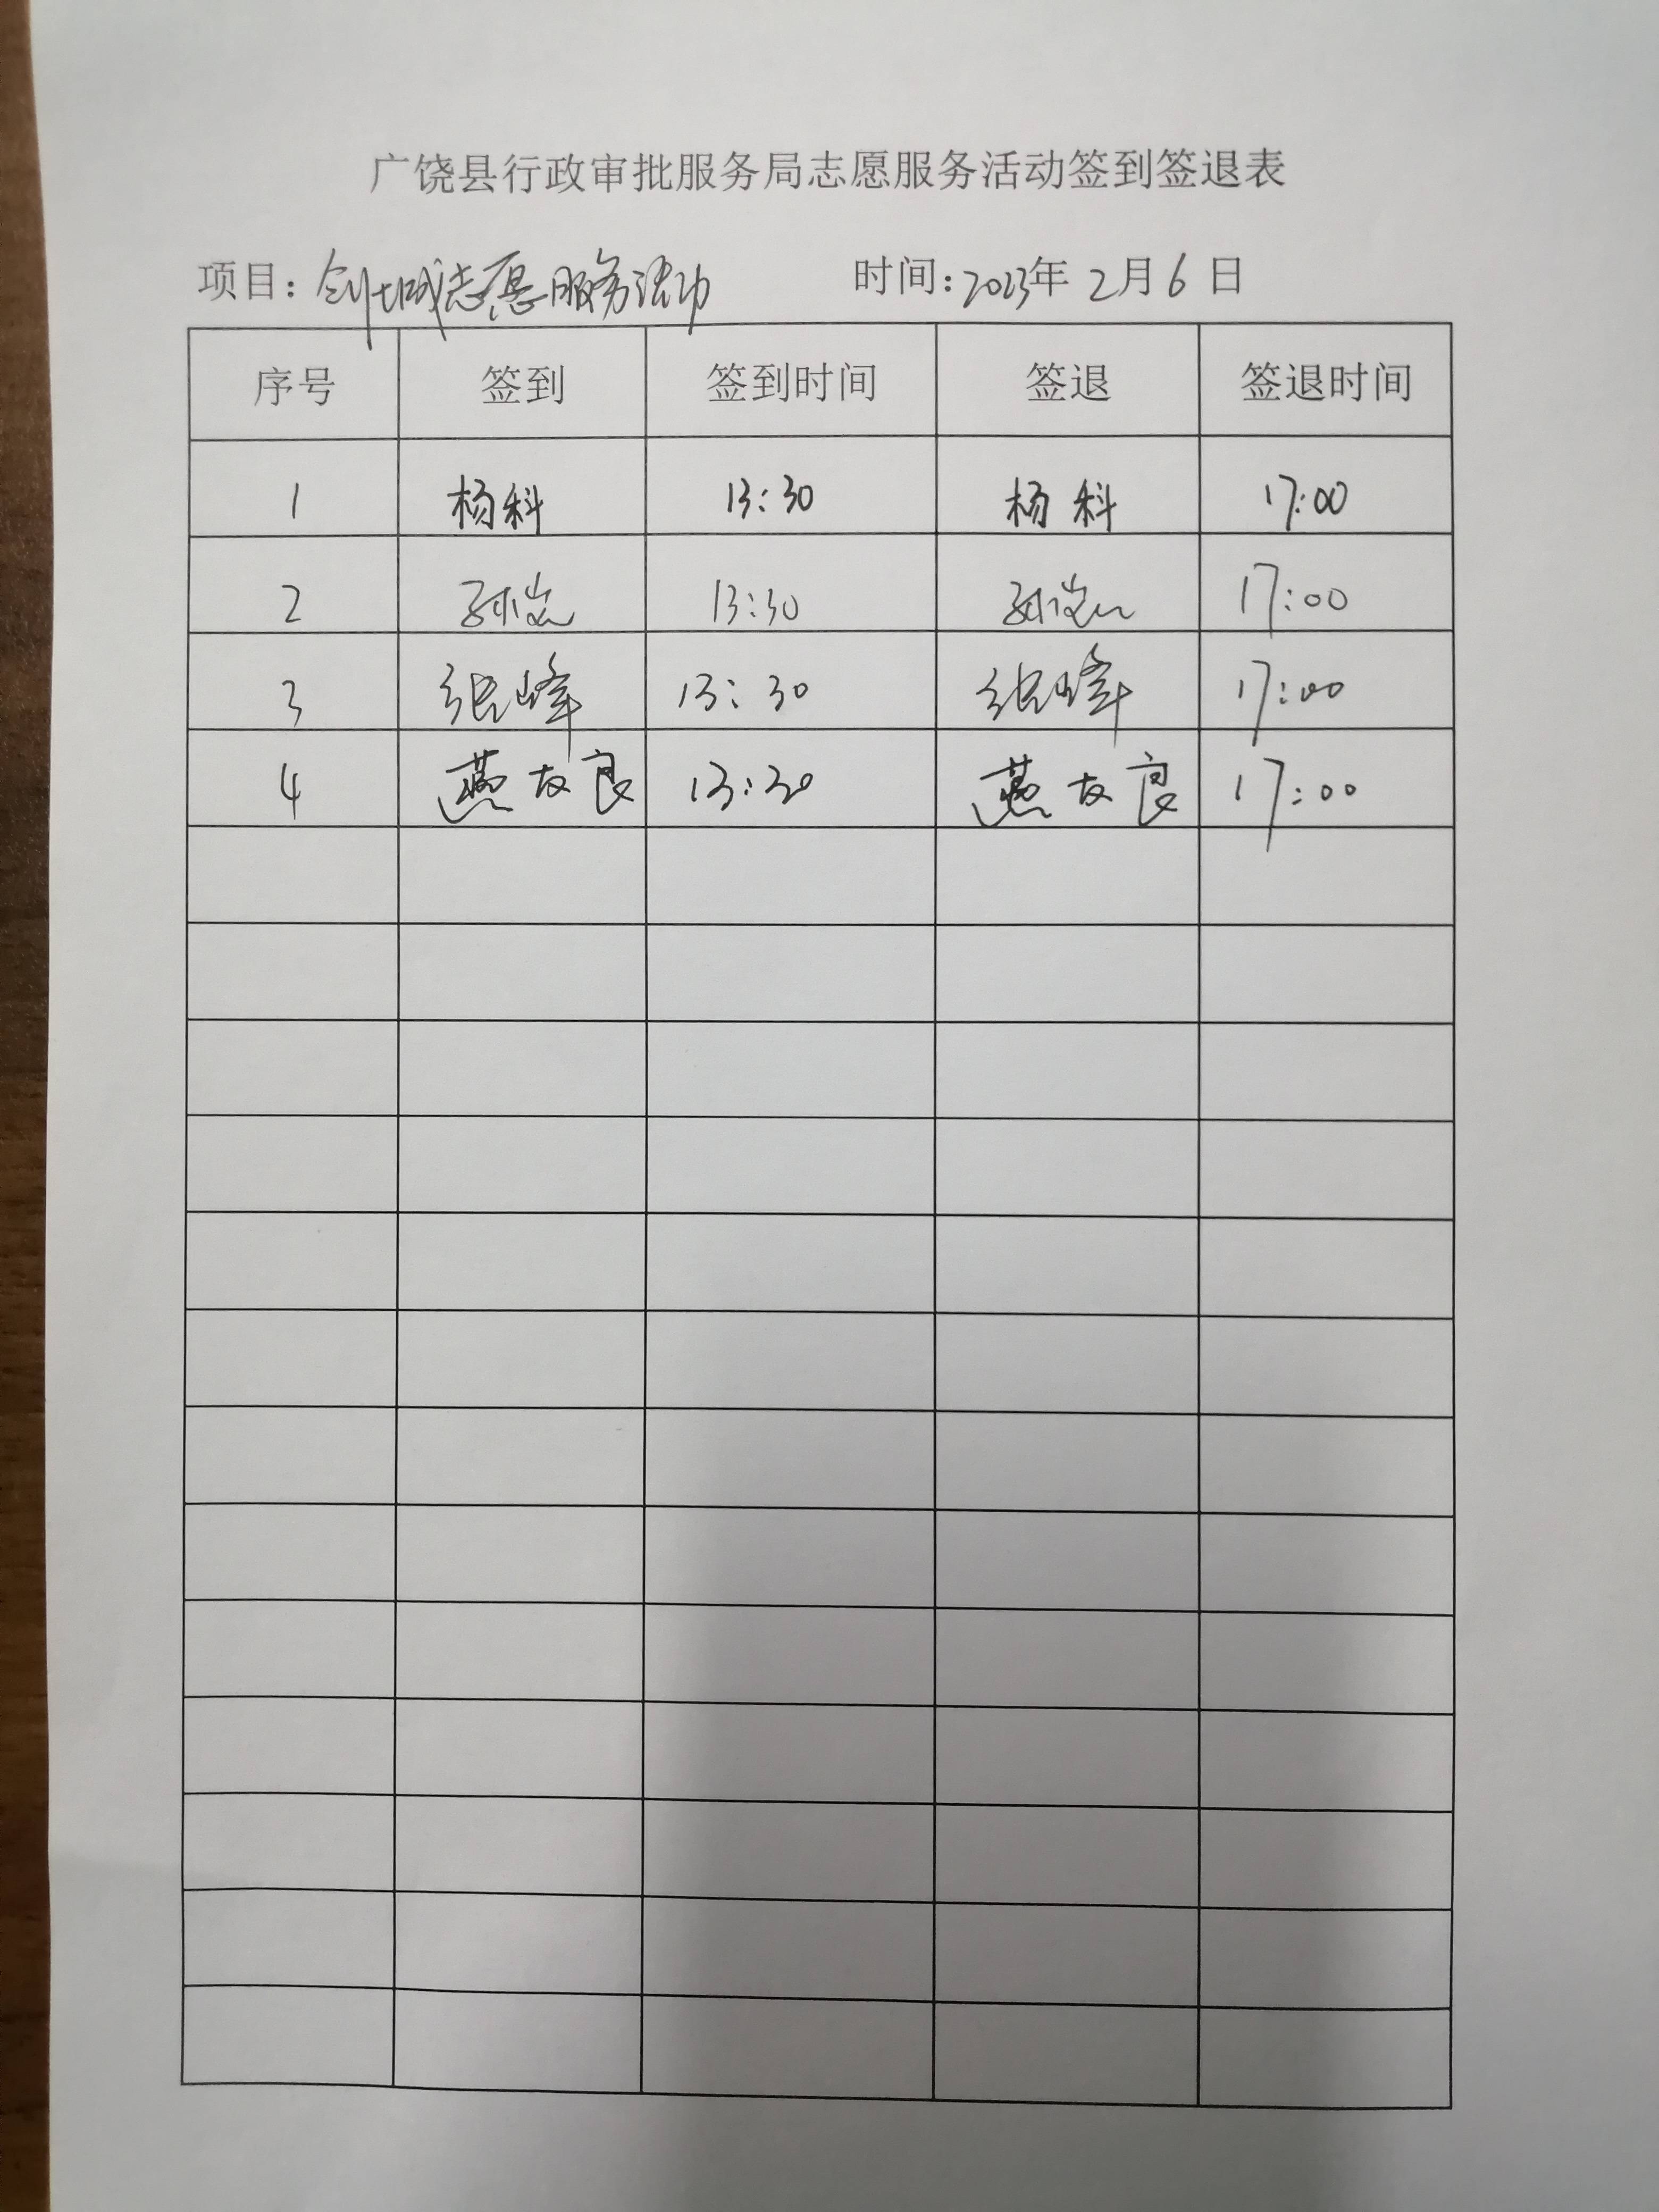 广饶县行政审批服务局志愿服务活动签到签退表
项目：创城志愿服务活动 时间：2023年 2月 6 日
序号 签到 签到时间 签退 签退时间
1 杨科 13:30 杨科 17:00
2 13:30 17:00
3 张峰 13:30 张峰 17:00
4 燕友良 13:30 燕友良 17:00